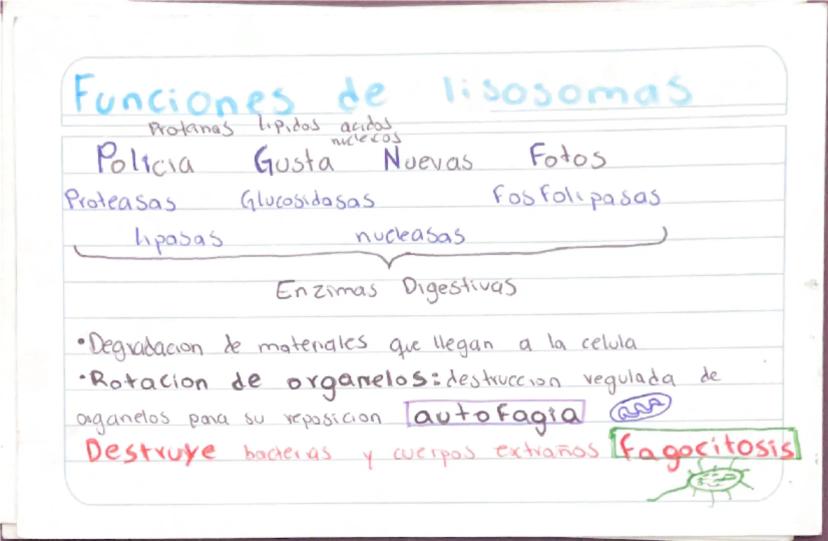 Funciones de lisosomas
Proteinas lipidos acidos
nucleicos
Policia Gusta Nuevas Fotos
Proteasas Glucosidasas Fosfolipasas
lipasas nucleasas
Enzimas Digestivas
•Degradacion de materiales que llegan a la celula
•Rotacion de organelos: destruccion regulada de
organelos para su reposicion autofagia
Destruye bacterias y cuerpos extraños fagocitosis